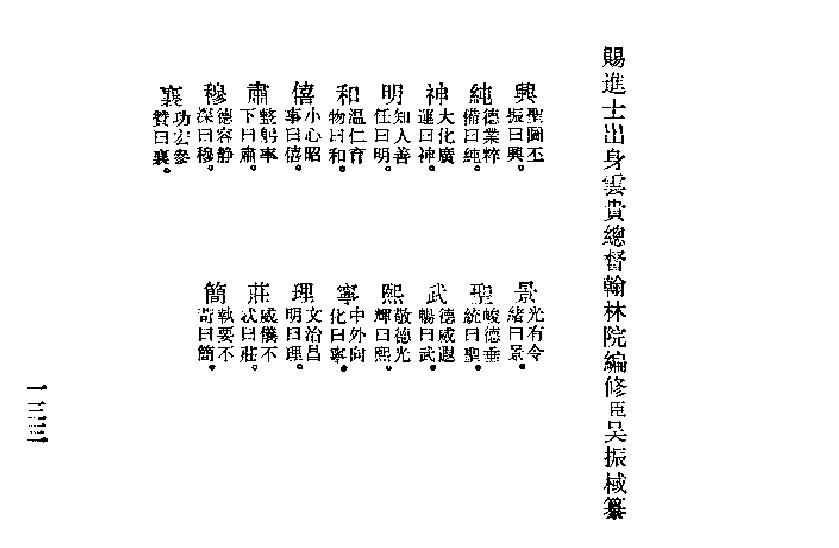 賜進士出身雲貴總督翰林院編修臣吳振棫纂
興聖圖丕振曰興。 景光有令緒曰景。
純德業粹備曰純。 聖峻德垂統曰聖。
神大化廣運曰神。 武德威遐暢曰武。
明知人善任曰明。 熙敬德光輝曰熙。
和温仁育物曰和。 寧中外向化曰寧。
僖小心昭事曰僖。 理文治昌明曰理。
肅整躬率下曰肅。 莊威儀不忒曰莊。
穆德容静深曰穆。 簡執要不苛曰簡。
襄功宏參贊曰襄。